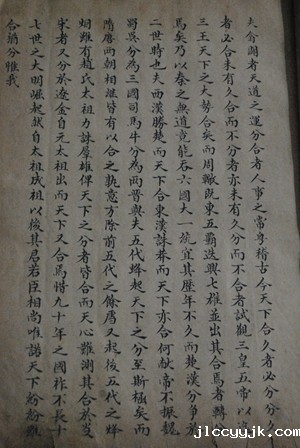 夫合闢者天道之運分合者人事之常粤稽古今天下合久必分分久
者必合未有久合而不分者亦未有久分而不合者試觀三皇五帝以迨
三王天下之大勢合矣而周轍既東五霸迭興七雄並出其合焉者轉
馬矣乃以秦之無道竟能吞六國大一統宜其歷年不久而楚漢分爭於
二世時也夫西漢勝楚而天下合東漢誅莽而天下亦合何献帝不振魏
蜀吳分為三國司馬牛分為两晋與夫五代蜂起天下之分至斯極矣而
隋唐两朝相継皆有以合之孰意方除前五代之餘腐又起後五代之蜂
烟雖有趙氏太祖力誅羣雄俾天下之分者皆合而天心難測其合於
宋者又分於遼金自元太祖出而天下又合焉惜九十年之國祚不長十
七世之大明崛起然自太祖成祖以後其君若臣相尚唯諾天下紛紛
合朝分惟我
jlccyyjk.com